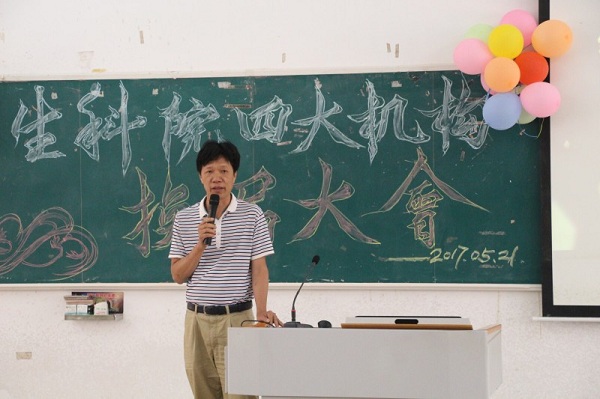 生科院四大机构
换届大會
2017.05.21